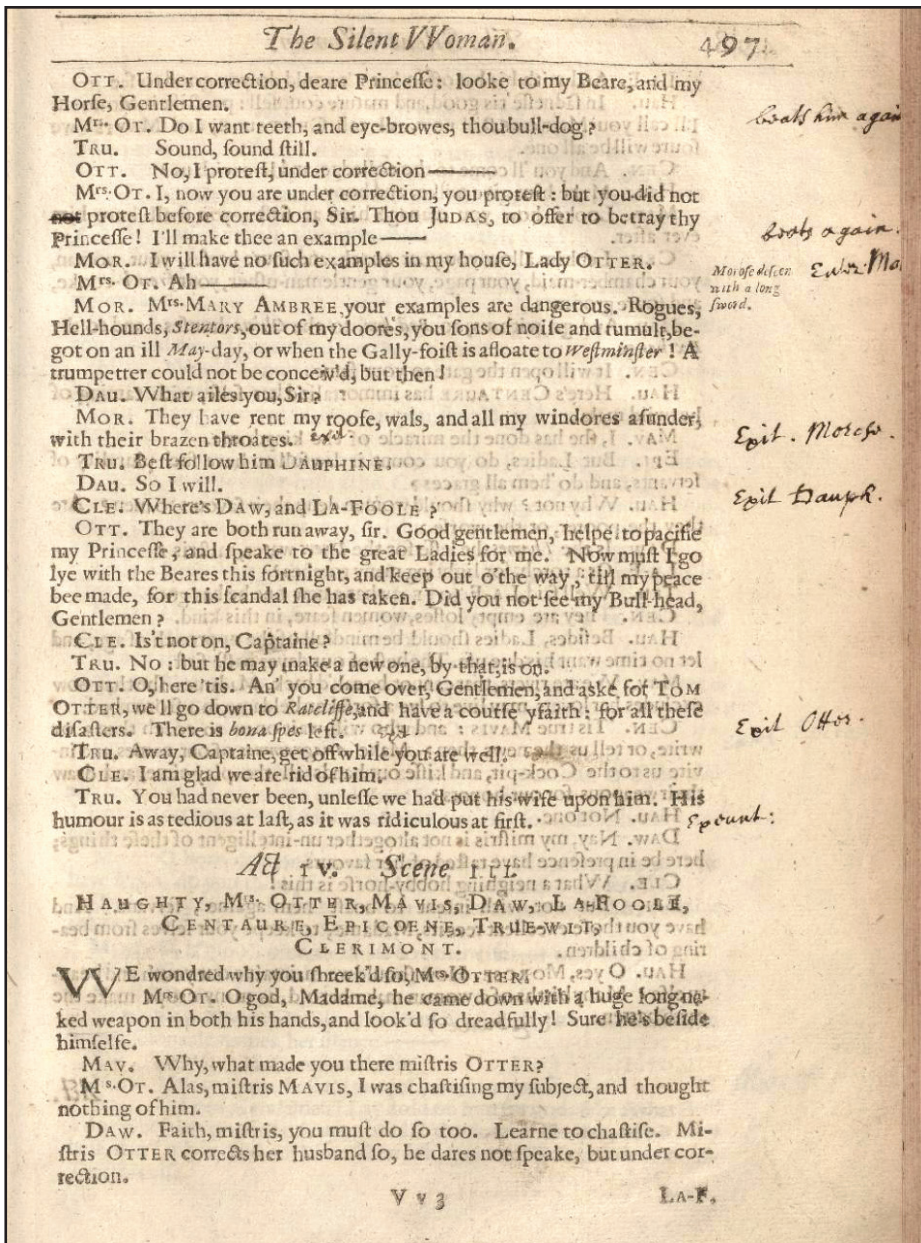 The Silent VVoman. 497.
OTT. Under correction, deare Princeſſe: looke to my Beare, and my
Horſe, Gentlemen.
Mrs. OT. Do I want teeth, and eye-browes, thou bull-dog?
beats him again
TRU. Sound, ſound ſtill.
OTT. No, I proteſt, under correction———
Mrs. OT. I, now you are under correction, you proteſt: but you did not
not proteſt before correction, Sir. Thou JUDAS, to offer to betray thy
Princeſſe! I'll make thee an example——
beats again.
MOR. I will have no ſuch examples in my houſe, Lady OTTER.
Moroſe deſcen
with a long
ſword.
Enter Mo
Mrs. OT. Ah———
MOR. Mrs. MARY AMBREE, your examples are dangerous. Rogues,
Hell-hounds, Stentors, out of my doores, you ſons of noiſe and tumult, be-
got on an ill May-day, or when the Gally-foiſt is afloate to Weſtminſter! A
trumpetter could not be conceiv'd, but then!
DAU. What ailes you, Sir?
MOR. They have rent my roofe, wals, and all my windores aſunder,
with their brazen throates. exit
Exit. Morose.
TRU. Beſt follow him DAUPHINE.
DAU. So I will.
Exit Dauph.
CLE. Where's DAW, and LA-FOOLE?
OTT. They are both run away, ſir. Good gentlemen, helpe to pacifie
my Princeſſe, and ſpeake to the great Ladies for me. Now muſt I go
lye with the Beares this fortnight, and keep out o'the way, till my peace
bee made, for this ſcandal ſhe has taken. Did you not ſee my Bull-head,
Gentlemen?
CLE. Is't not on, Captaine?
TRU. No: but he may make a new one, by that, is on.
OTT. O, here 'tis. An' you come over, Gentlemen, and aske for TOM
OTTER, we'll go down to Ratcliffe, and have a courſe yfaith: for all theſe
diſaſters. There is bona ſpes left.
Exit Otter.
TRU. Away, Captaine, get off while you are well.
CLE. I am glad we are rid of him.
TRU. You had never been, unleſſe we had put his wife upon him. His
humour is as tedious at laſt, as it was ridiculous at firſt.
Exeunt:
Act IV. Scene III.
HAUGHTY, Ms. OTTER, MAVIS, DAW, LA-FOOLE,
CENTAURE, EPICOENE, TRUE-WIT,
CLERIMONT.
WE wondred why you ſhreek'd ſo, Mrs. OTTER.
Mrs. OT. O god, Madame, he came down with a huge long na-
ked weapon in both his hands, and look'd ſo dreadfully! Sure he's beſide
himſelfe.
MAV. Why, what made you there miſtris OTTER?
Ms. OT. Alas, miſtris MAVIS, I was chaſtiſing my ſubject, and thought
nothing of him.
DAW. Faith, miſtris, you muſt do ſo too. Learne to chaſtiſe. Mi-
ſtris OTTER corrects her husband ſo, he dares not ſpeake, but under cor-
rection.
V v 3 LA-F.